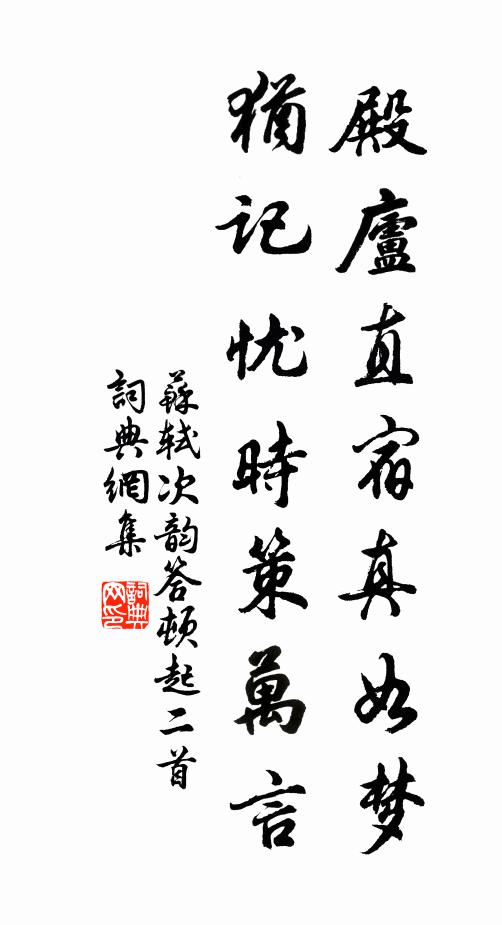 殿廬直宿真如梦
猶記忧時策萬言
蘇轼次韵答頓起二首
詞典網集
詞典网印